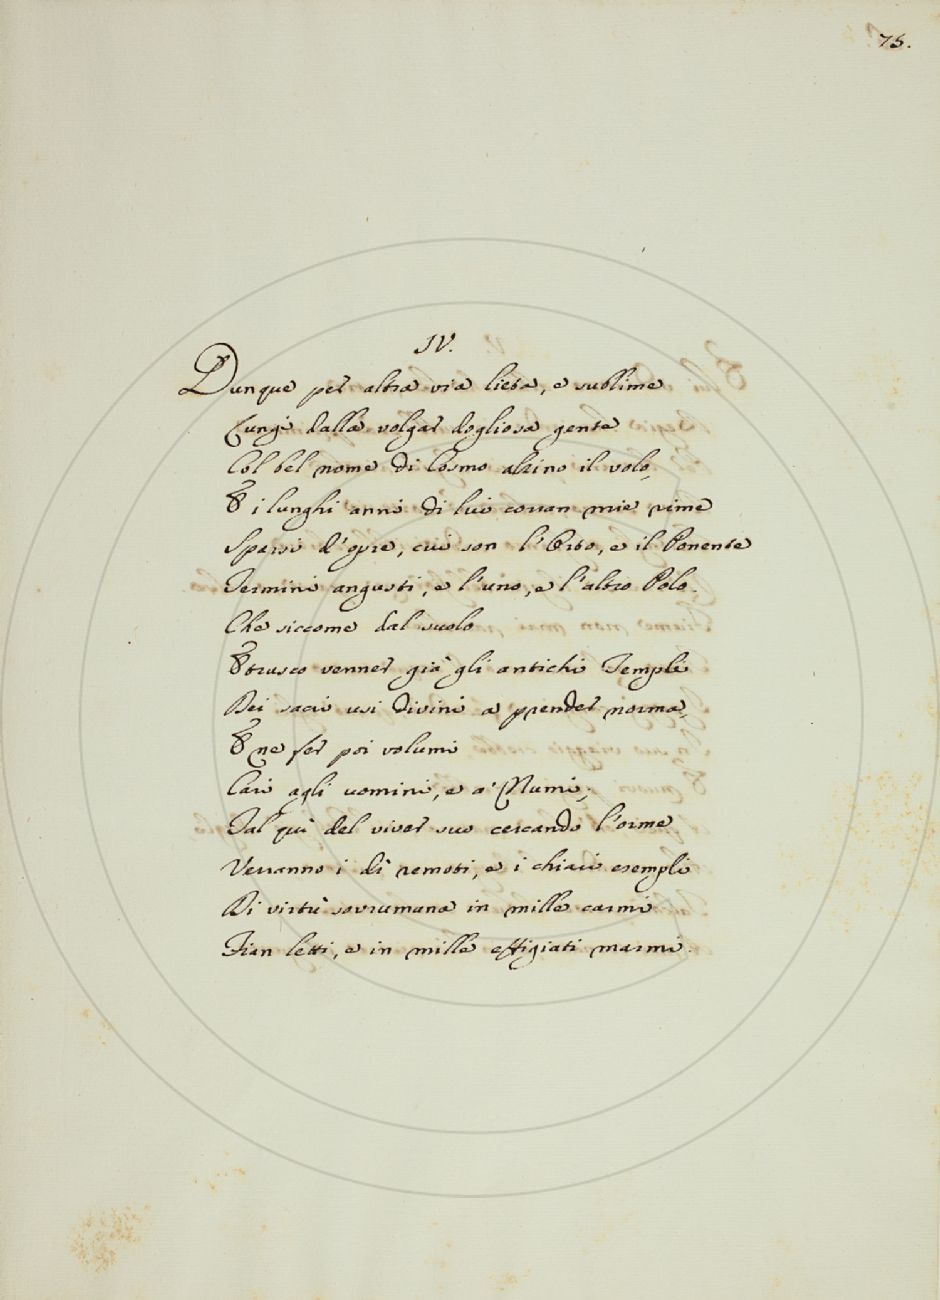 75.
IV.
Dunque per altra via lieta, e sublime
Lungi dalla volgar dogliosa gente
Col bel nome di Cosmo alzino il volo,
E i lunghi anni di lui corran mie rime
Sparsi d'opre, cui son l'Orto, e il Ponente
Termini angusti, e l'uno, e l'altro Polo.
Che siccome dal suolo
Etrusco venner già gli antichi Templi
Dei sacri usi divini a prender norma,
E ne fer poi volumi
Cari agli uomini, e a' Numi;
Tal quì del viver suo cercando l'orme
Verranno i dì remoti, e i chiari esempli
Di virtù sovrumana in mille carmi
Fian letti, e in mille effigiati marmi.